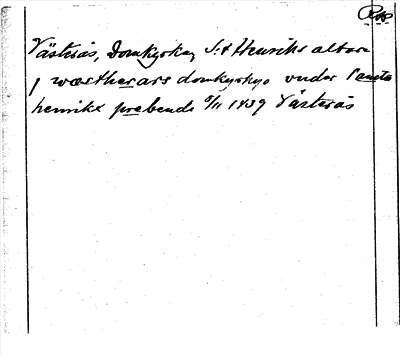 Västerås, Domkyrka, S:t Henriks altare
j wæstherars domkyrkyo vnder sancta
henrikx prebende 8/11 1439 Västerås